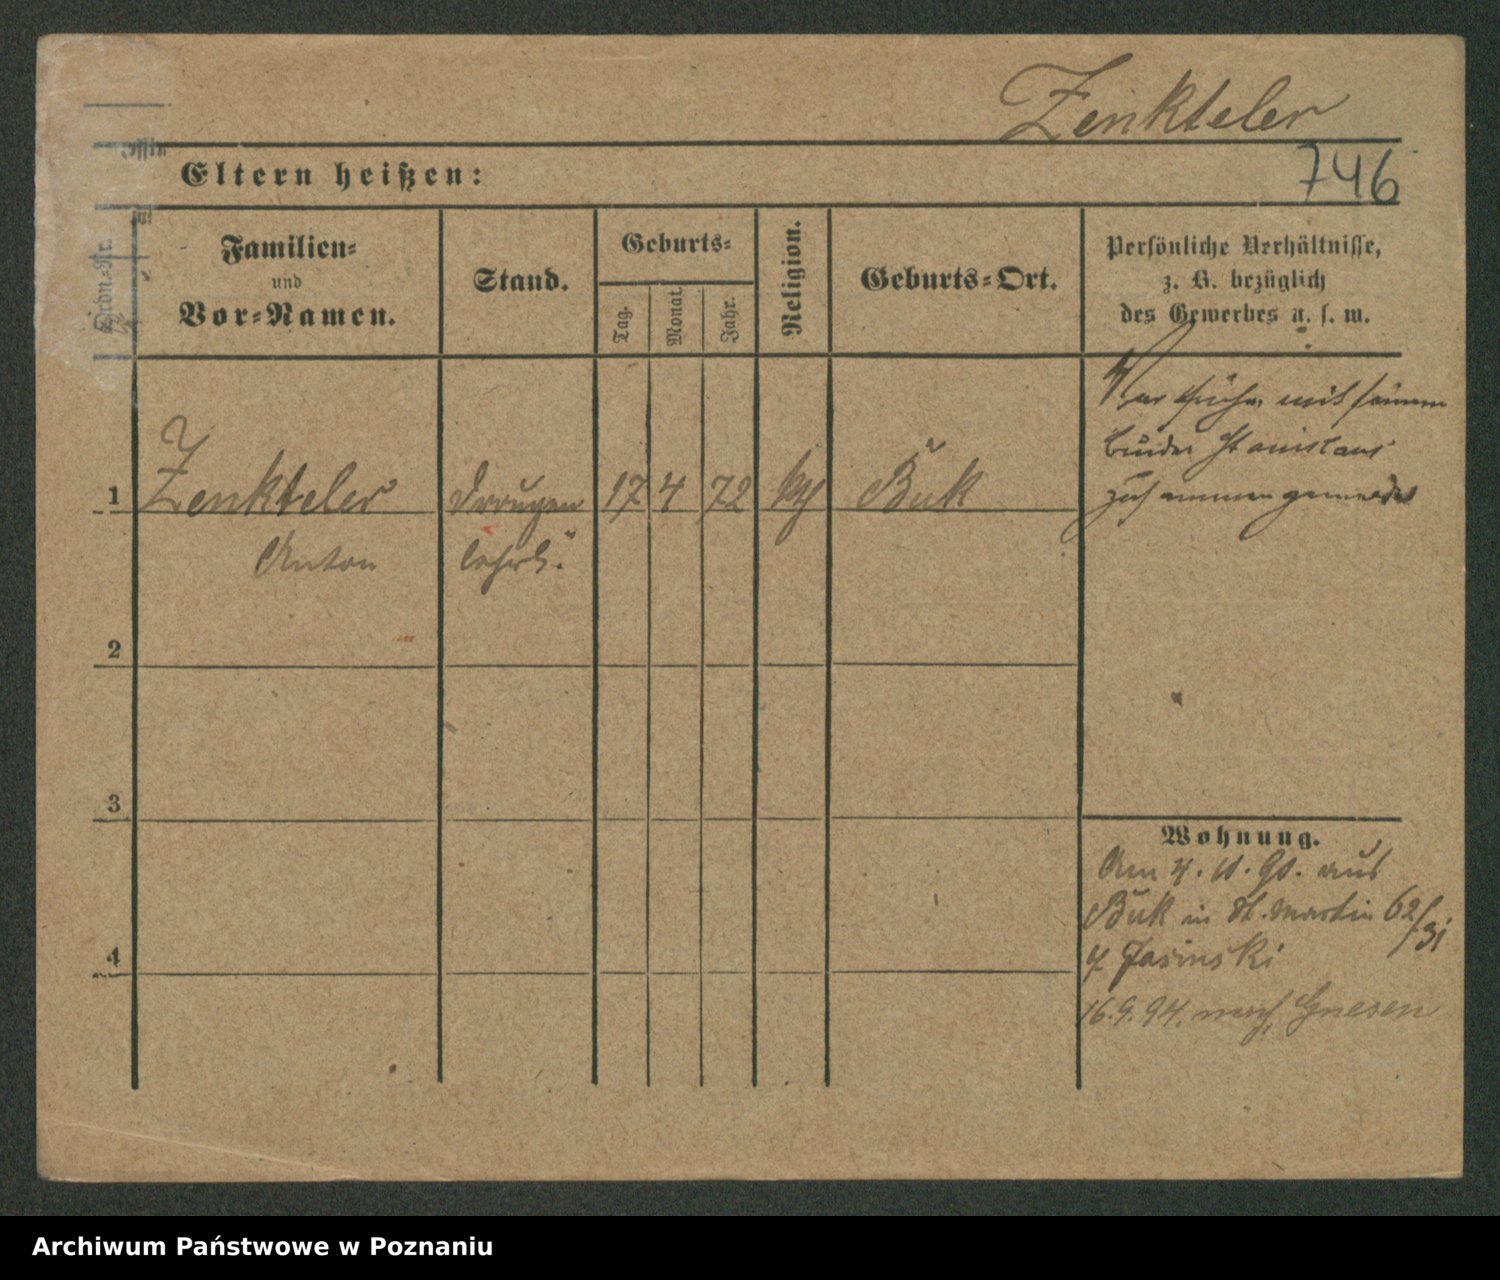 Zenkteler
Eltern heißen:
746
Ordn.-Nr.
Familien-
und
Vor-Namen.
Stand.
Geburts-
Tag.
Monat
Jahr.
Religion.
Geburts-Ort.
Persönliche Verhältnisse,
z. B. bezüglich
des Gewerbes u. s. w.
1 Zenkteler Drougen 17 4 72 kth Buk
Anton lehrl.
War früher mit seinem
Bruder Stanislaus
zusammen gemeldet
2
3
4
Wohnung.
Am 4. 11. 90. aus
Buk in St. Martin 62/31
Jasinski
16.9.94. nach Gnesen
Archiwum Państwowe w Poznaniu